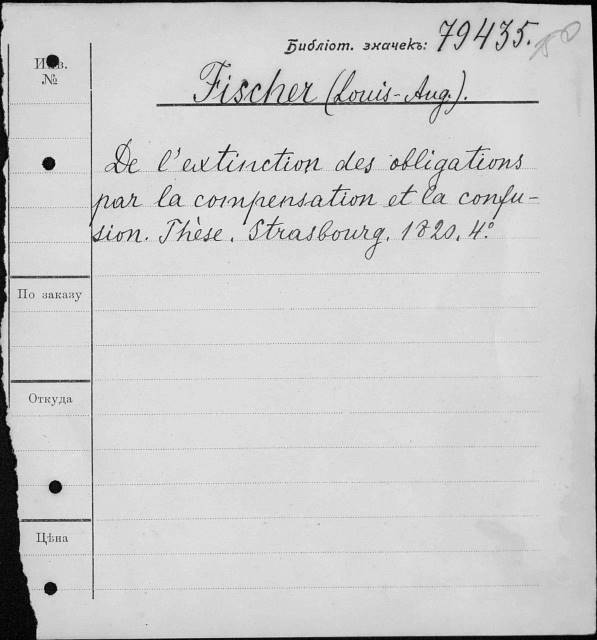 Библіот. значекъ: 79435.
Инв.
№
Fischer (Louis-Aug.).
De l'extinction des obligations
par la compensation et la confu-
sion. Thèse. Strasbourg. 1820. 4º
По заказу
Откуда
Цѣна